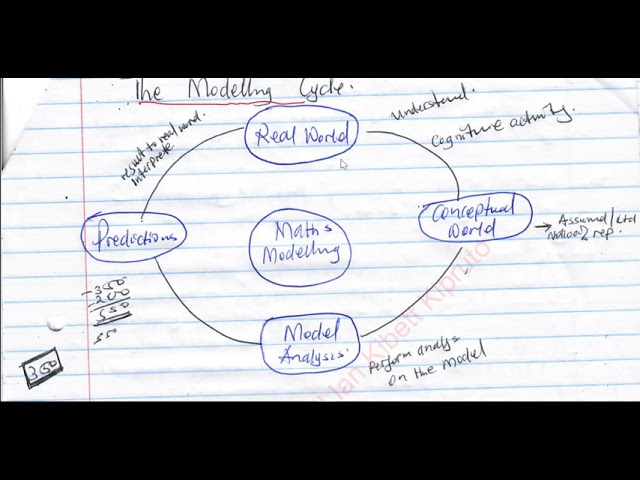 The Modelling Cycle.
Understand.
Cognitive activity.
result to real world.
interprete
Real World
Conceptual
World
Assumed/
rep.
Predictions
Maths
Modelling
-350
-200
550
350
Model
Analysis.
Perform analys
on the Model
Ian Kibett Kipruto